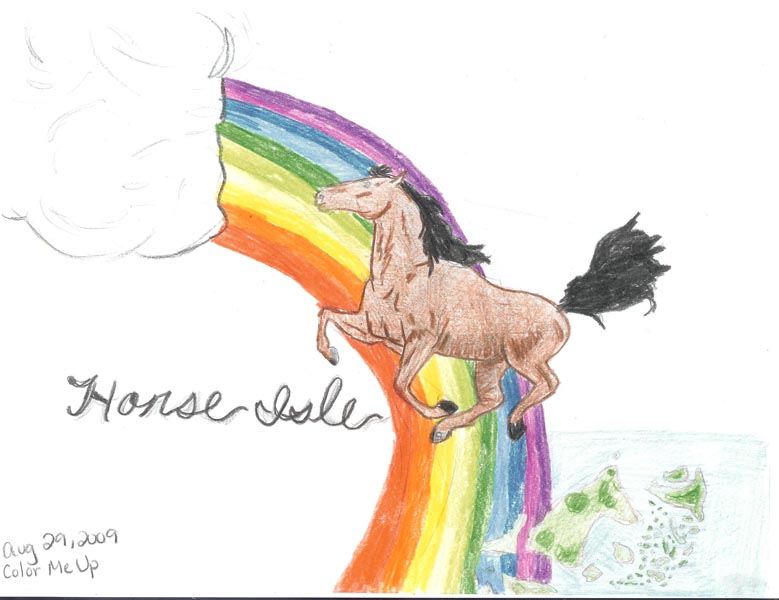 Horse Isle
Aug 29, 2009
Color Me Up